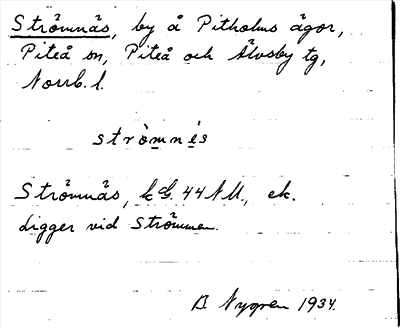 Strömnäs, by å Pitholms ägor,
Piteå sn, Piteå och Älvsby tg,
Norrb. l.
strömnés
Strömnäs, k G. 44 NU., ek.
Ligger vid Strömmen.
B. Nygren 1934.